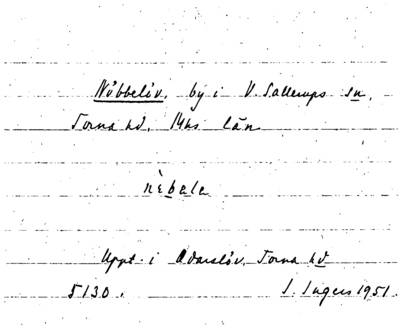 Nöbbelöv, by i V. Sallerups sn,
Torna hd, Mhs län
nèbele
Uppt. i Odarslöv, Torna hd
5130. I. Ingers 1951.